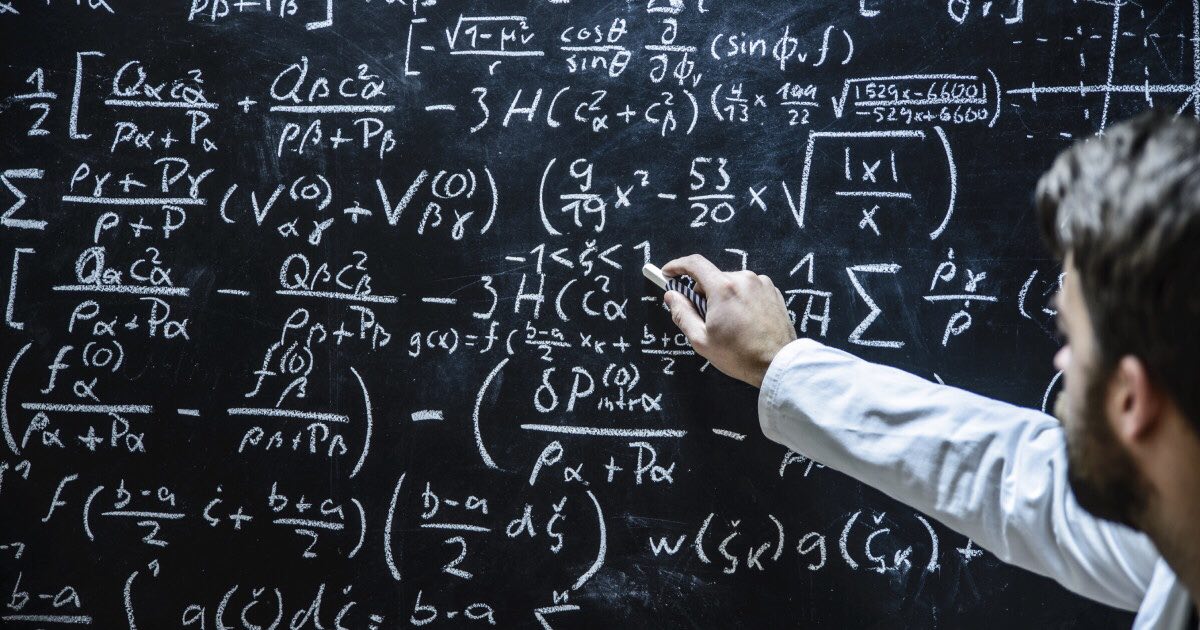 ρβ + Pβ ]
[ - √1-μ²ᵥ / r cosθ / sinθ ∂ / ∂ϕᵥ (sin ϕᵥ f)
1/2 [ Qα c²α / ρα + Pα + Qβ c²α / ρβ + Pβ - 3H(c²α + c²β) (4/13 x 109/22 √(1529x-66001 / -529x+6600))
Σ ργ + Pγ / ρ + P (V^(0) αγ + V^(0) βγ) (9/19 x² - 53/20 x √(|x| / x))
-1 < ξ̌ < 1
[ Qα c²α / ρα + Pα - Qβ c²α / ρβ + Pβ - 3H (c²α 1/H Σ ρ̇γ / ρ̇ (
g(x) = f (b-a / 2 xκ + b+a / 2
( f^(0)α / ρα + Pα - f^(0)β / ρβ + Pβ ) - ( δP^(0) intrα / ρα + Pα -
f ( b-a / 2 ξ + b+a / 2 ) ( b-a / 2 dξ̌ ) w(ξ̌κ) g(ξ̌κ) +
b-a ( g(ξ̌) dξ = b-a Σ